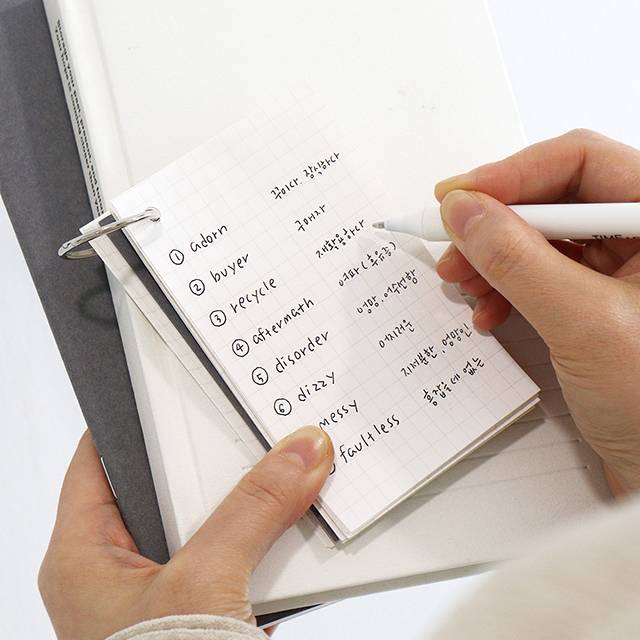 ① adorn 꾸미다. 장식하다
② buyer 구매자
③ recycle 재활용하다
④ aftermath 여파 (후유증)
⑤ disorder 엉망. 어수선함
⑥ dizzy 어지러운
messy 지저분한. 엉망인
faultless 흠잡을 데 없는
TIME